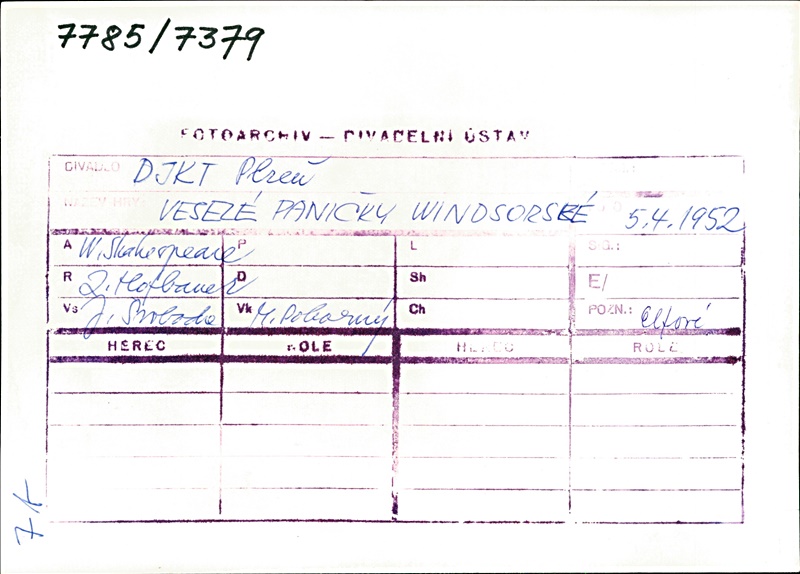 7785/7379
FOTOARCHIV — DIVADELNÍ ÚSTAV
DIVADLO DJKT Plzeň
NÁZEV HRY: VESELÉ PANIČKY WINDSORSKÉ 5.4.1952
A W. Shakespeare P L SIG.:
R Z. Hofbauer D Sh E/
Vs J. Svoboda Vk M. Pokorný Ch POZN.: Elfové
HEREC ROLE HEREC ROLE
7k